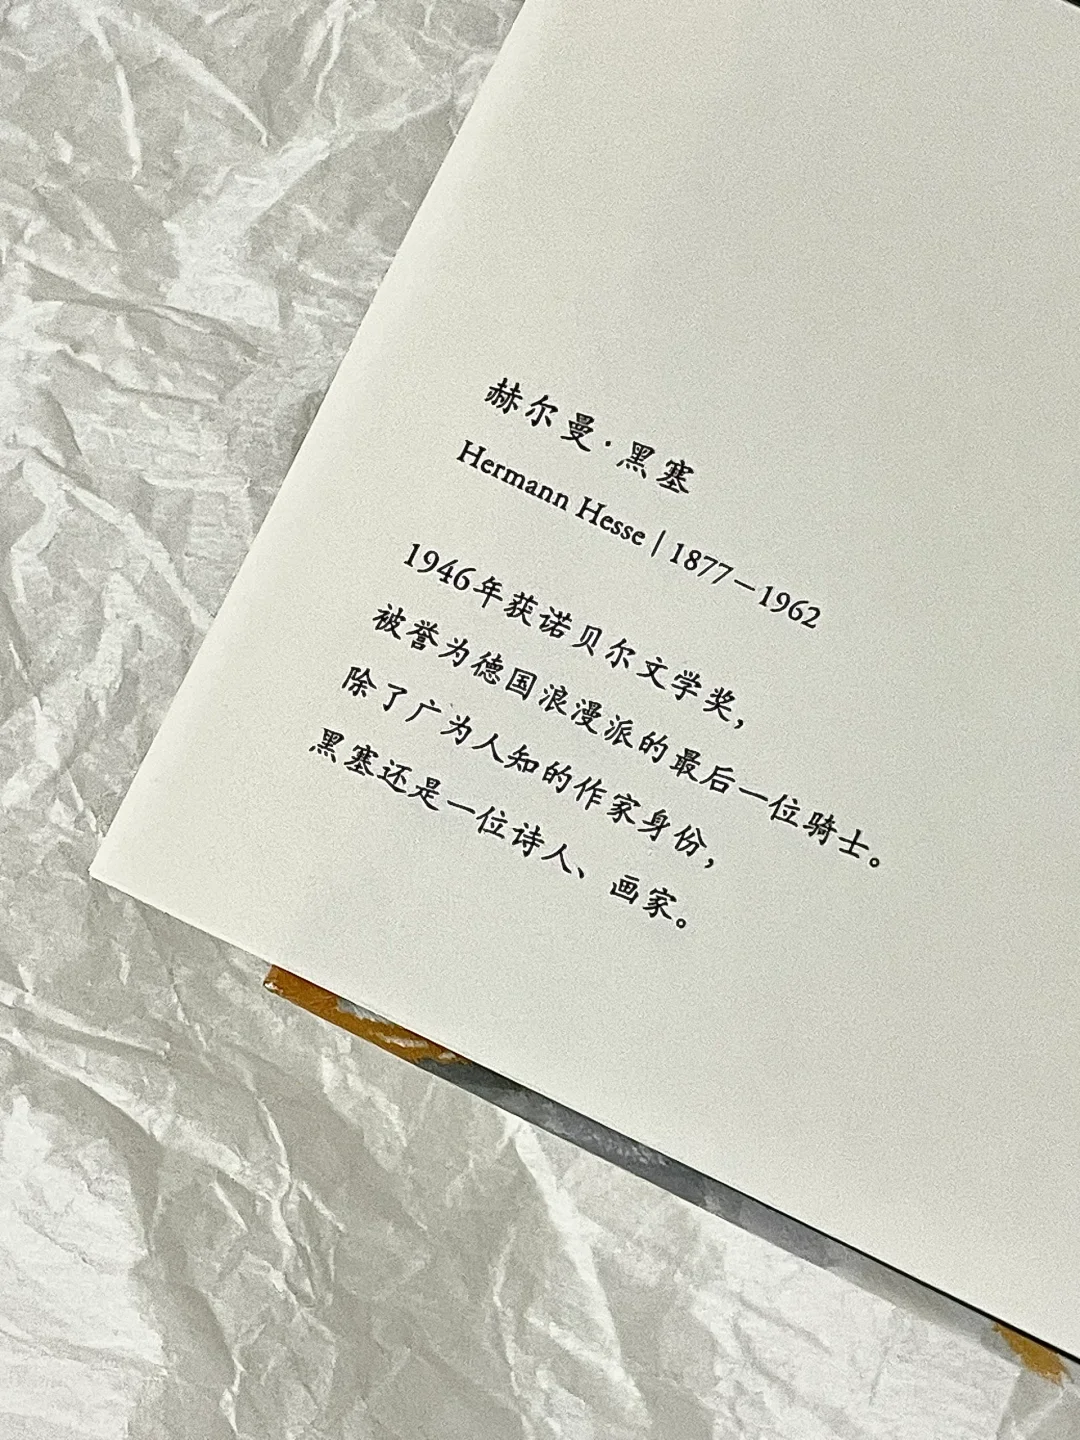 赫尔曼·黑塞
Hermann Hesse | 1877–1962
1946年获诺贝尔文学奖，
被誉为德国浪漫派的最后一位骑士。
除了广为人知的作家身份，
黑塞还是一位诗人、画家。